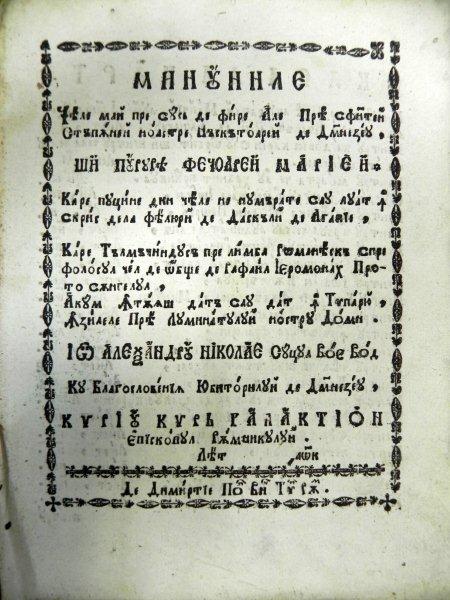 МИНꙊНИЛЕ
Челе май пре сус де фире, але Прѣ сфинтей
Стъпѫней ноастре Нъскътоарей де Дмнезеу,
ШИ ПꙊРꙊРѢ ФЕЧОАРЕЙ МАРІЕЙ.
Каре пуцине дин челе не нумърате сау луат ꙟ
скрис дела фелюрй де Даскълй де Агаѳіе,
Каре Тълмъчиндусъ пре лимба Рѡмѫнѣскъ спре
фолосул чел де ѡбще де Рафаил Іеромонах Про-
то сѫнгелул,
Акум ꙟтѫяш датъ сау дат ꙟ Типарю,
ꙟзилеле Прѣ Луминатулуй ностру Домн.
ІѠ АЛЕѮАНДРꙊ НІКОЛАЕ Суцул Вое Вод
Ку Благословенія Юбиторюлуй де Дмнезеу,
КѴРІꙊ КѴРЪ ГАЛАКТІѠН
Єпіскопул Рѫмникулуй.
Лѣт ҂аѡк
Де Димитріе По Вич Ти Рѫ.